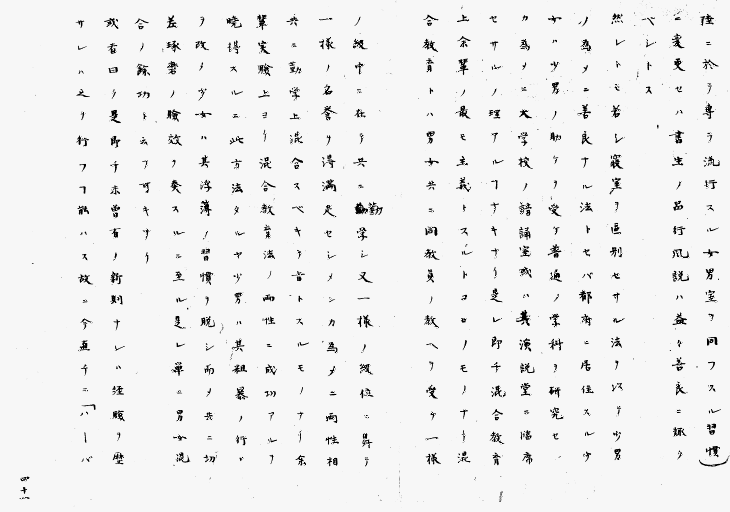 陸ニ於テ専ラ流行スル女男室ヲ同フスル習慣
ニ変更セハ書生ノ品行風説ハ益々善良ニ趣ク
ベシトス
然レトモ若シ寝室ヲ區別セサル法ヲ以テ少男
ノ為メニ善良ナル法トセバ都府ニ居住スル少
女ハ少男ノ助ケヲ受ケ普通ノ学科ヲ研究セ
カ為メニ大学校ノ諳誦室或ハ其演説堂ニ臨席
セサルノ理アルコナキナリ是レ即チ混合教育
上余輩ノ最モ主義トスルトコロノモノナリ混
合教育トハ男女共ニ同教員ノ教ヘヲ受ケ一様
ノ級中ニ在テ共ニ勤学シ又一様ノ級位ニ昇リ
一様ノ名誉ヲ得満足セシメンカ為メニ両性相
共ニ勤学上混合スベキヲ旨トスルモノナリ余
輩実験上ヨリ混合教育法ノ両性ニ成功アルヲ
暁得スルニ此方法タルヤ少男ハ其粗暴ノ行
ヲ改メ少女ハ其浮薄ノ習慣ヲ脱シ而メ共ニ切
差琢磨ノ験效ヲ奏スルニ至ル是レ單ニ男女混
合ノ餘功ト云フ可キナリ
或者曰ク是即チ未曾有ノ新則ナレハ経験ヲ歴
サレハ之ヲ行フコ能ハス故ニ今直チニ「ハーバ